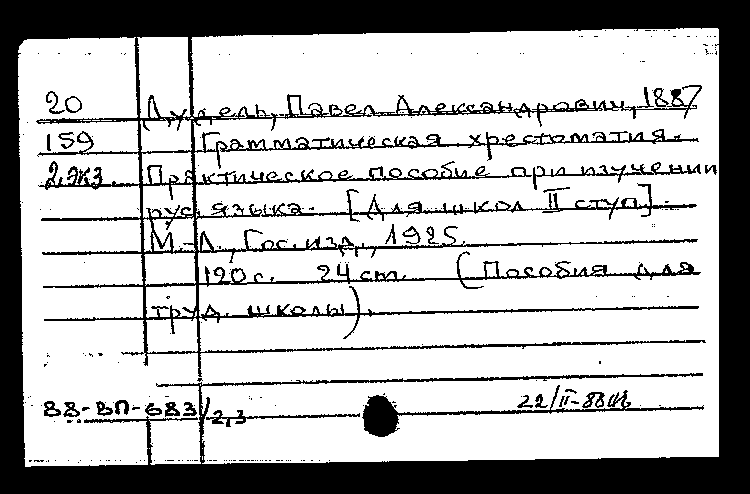 20 Дудель, Павел Александрович, 1887
159 Грамматическая хрестоматия.
2 экз. Практическое пособие при изучении
рус. языка. [Для школ II ступ].
М.-Л., Гос. изд., 1925.
120 с. 24 cm. (Пособия для
труд. школы).
88-ВП-683/2,3
22/II-88